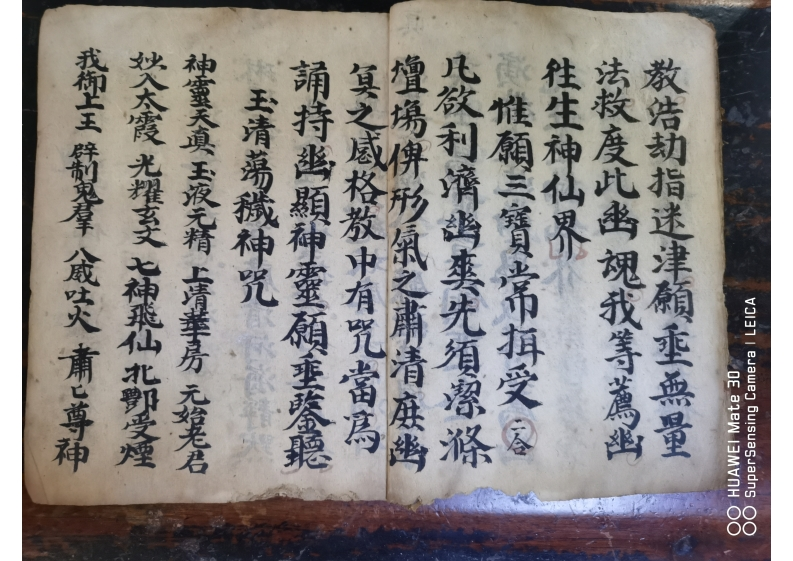 教浩劫指迷津願垂無量
法救度此幽魂我等薦幽
往生神仙界
惟願三寳常揖受 二合
凡欲利濟幽爽先須潔滌
壇場俾形氣之肅清庶幽
冥之感格教中有咒當為
誦持幽顯神靈願垂鑒聽
玉清蕩穢神咒
神靈天真 玉液元精 上清華房 元始老君
妙入太霞 光耀玄文 七神飛仙 北酆受煙
我御上王 辟制鬼羣 八威吐火 肅匕尊神
HUAWEI Mate 30
SuperSensing Camera | LEICA